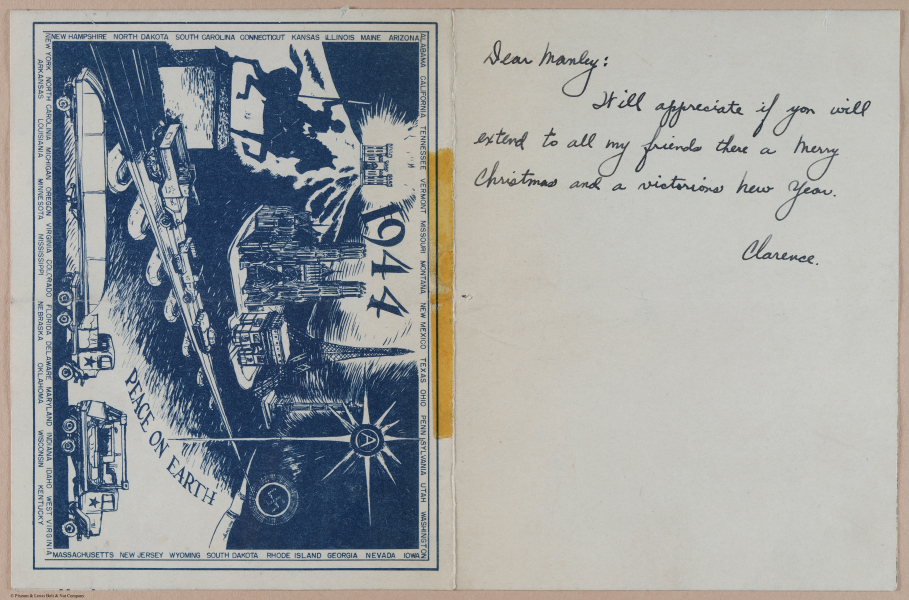 NEW HAMPSHIRE NORTH DAKOTA SOUTH CAROLINA CONNECTICUT KANSAS ILLINOIS MAINE ARIZONA
ALABAMA CALIFORNIA TENNESSEE VERMONT MISSOURI MONTANA NEW MEXICO TEXAS OHIO PENNSYLVANIA UTAH WASHINGTON
NEW YORK NORTH CAROLINA MICHIGAN OREGON VIRGINIA COLORADO FLORIDA DELAWARE MARYLAND INDIANA IDAHO WEST VIRGINIA
ARKANSAS LOUISIANA MINNESOTA MISSISSIPPI NEBRASKA OKLAHOMA WISCONSIN KENTUCKY
MASSACHUSETTS NEW JERSEY WYOMING SOUTH DAKOTA RHODE ISLAND GEORGIA NEVADA IOWA
1944
A
PEACE ON EARTH
Dear Manley:
Will appreciate if you will
extend to all my friends there a Merry
Christmas and a victorious New Year.
Clarence.
© Pioneer & Lewis Bolt & Nut Company